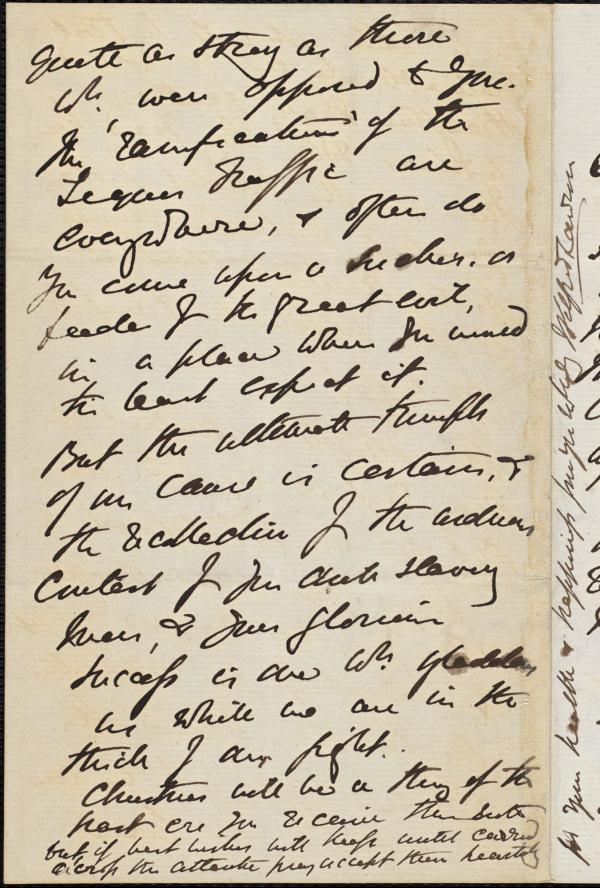 quite as strong as those
wh. were opposed to you.
The 'ramifications' of the
Liquor Traffic are
everywhere, & often do
you come upon a sucker, or
feeder of the great evil,
in a place where you would
the least expect it.
But the ultimate triumph
of our cause is certain, &
the recollection of the arduous
Contest of your Anti slavery
men, & your glorious
success is one wh. gladdens
us while we are in the
thick of our fight.
Christmas will be a thing of the
past ere you receive these lines
but if best wishes will keep until carried
across the Atlantic pray accept them heartily
for your health & happiness